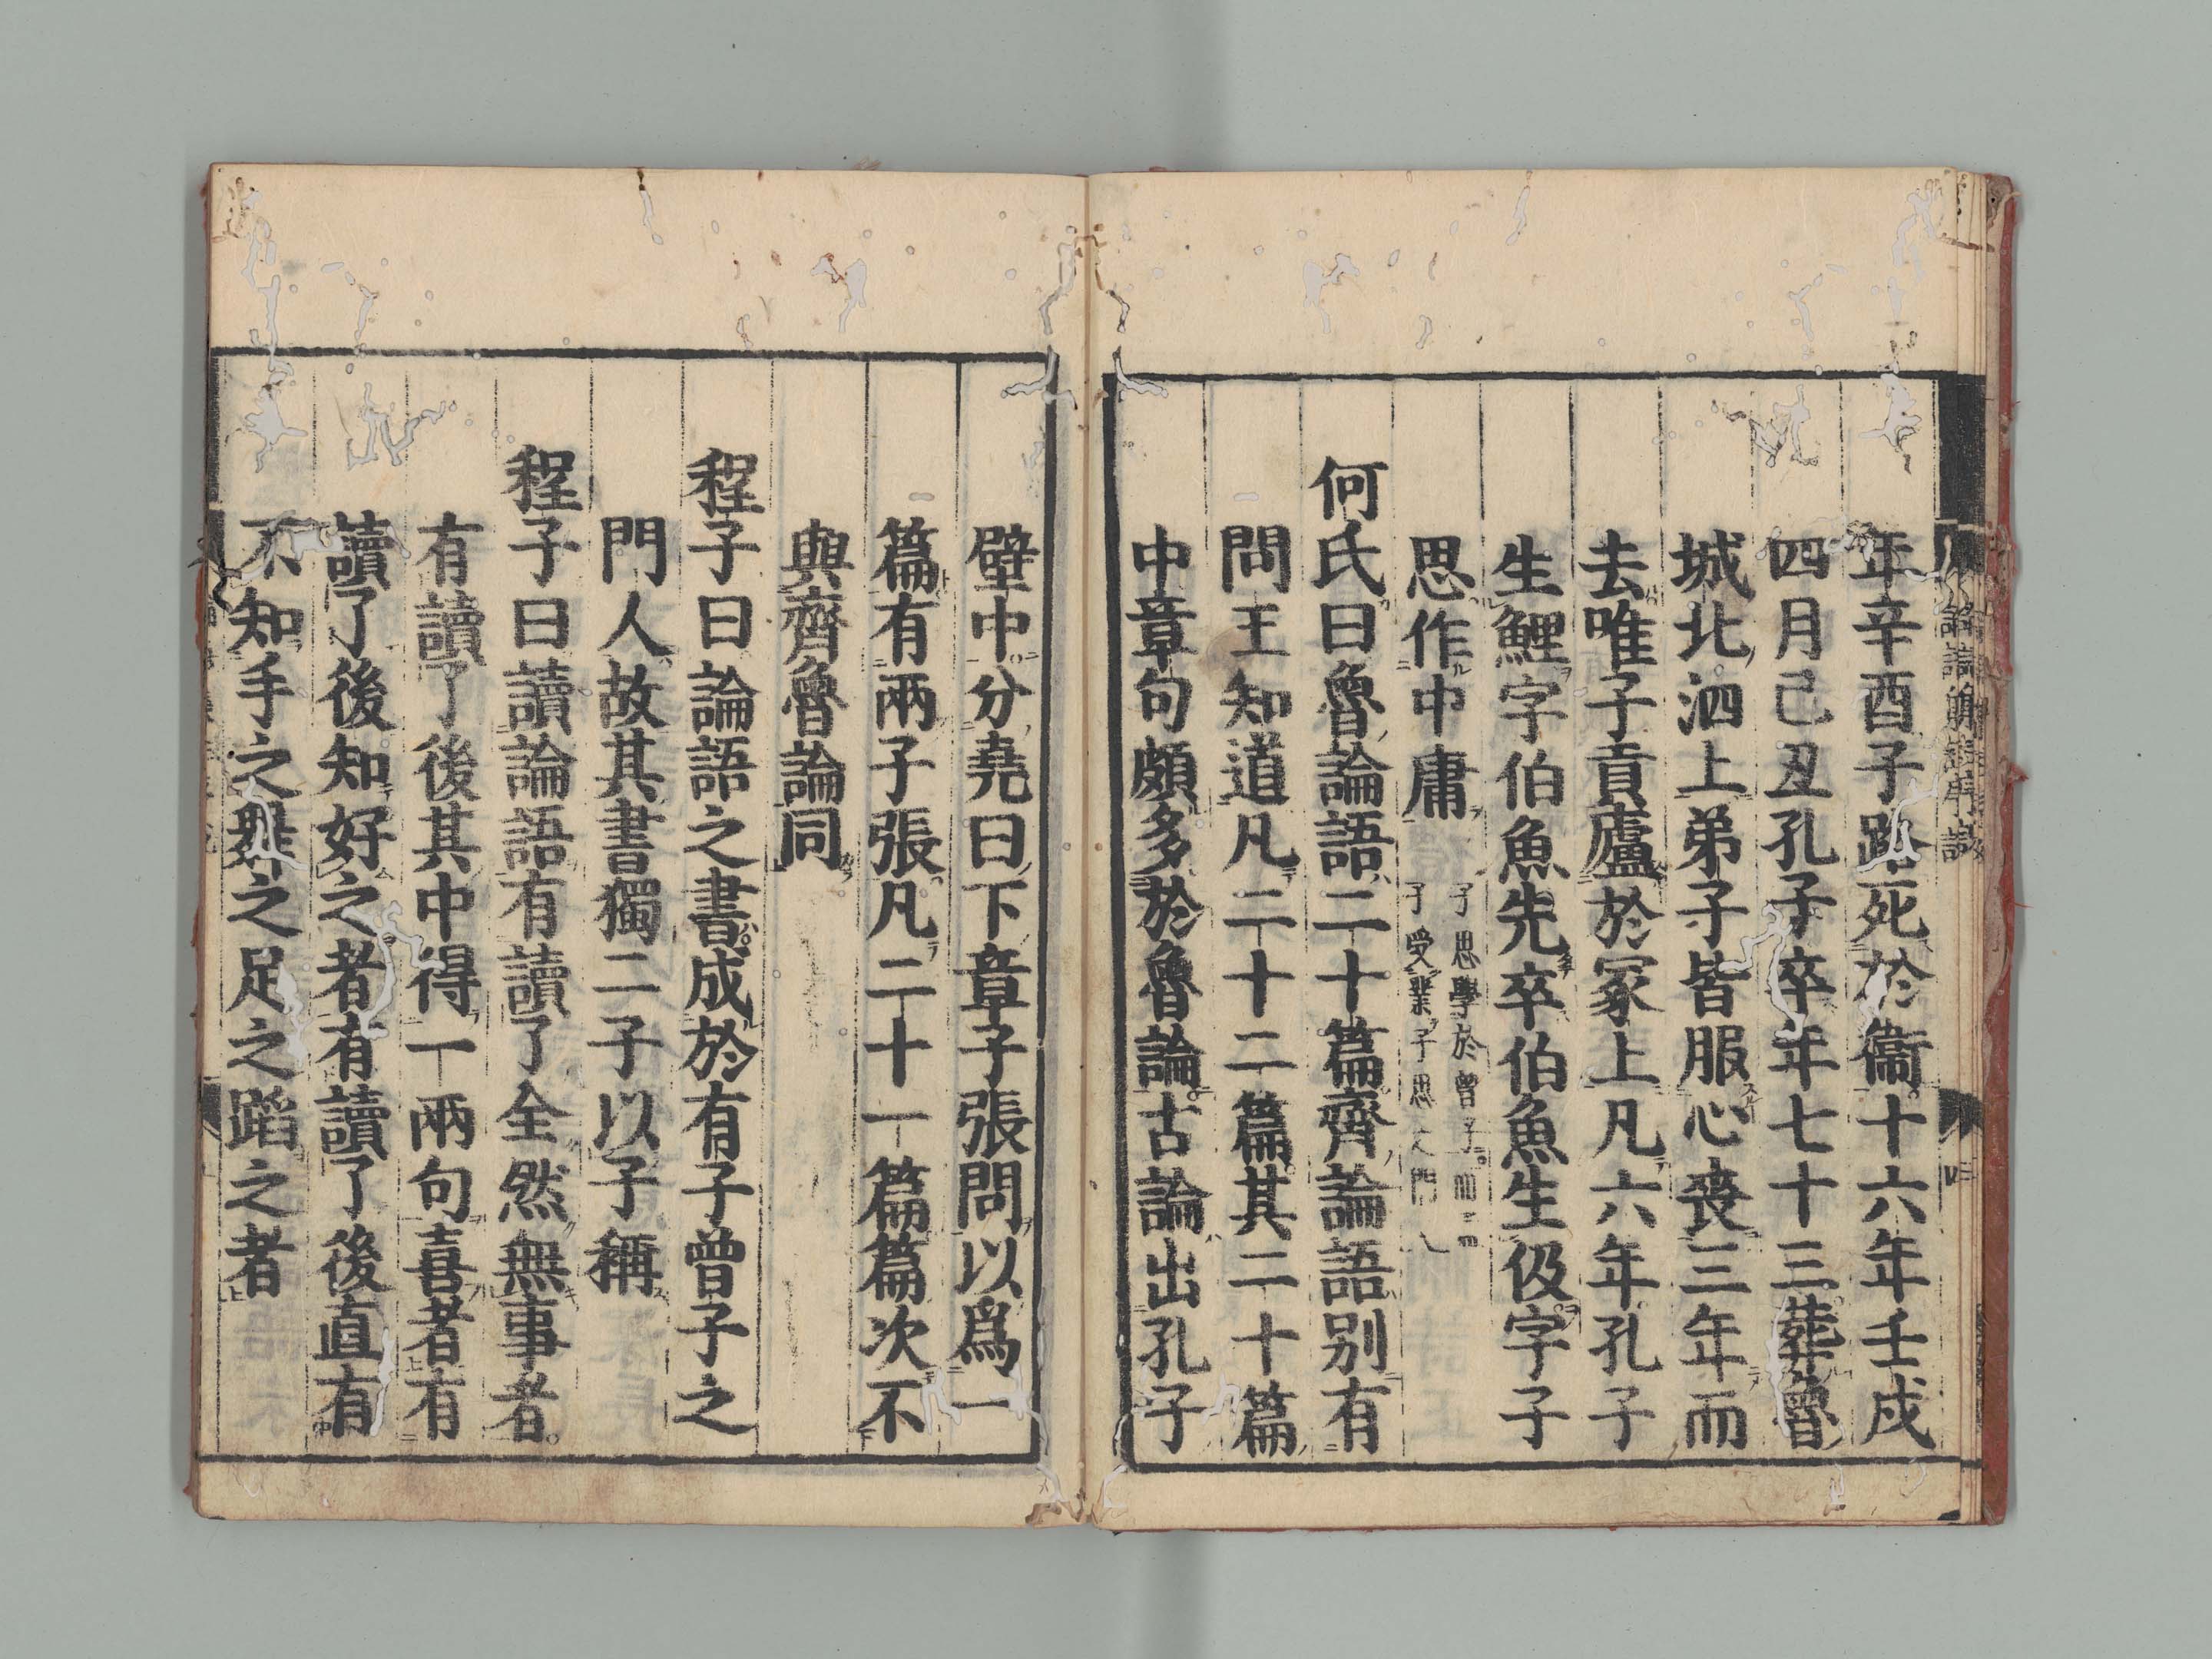 年辛酉子路死於衞十六年壬戌
四月己丑孔子卒年七十三葬魯
城北泗上弟子皆服心喪三年而
去唯子貢廬於冢上凡六年孔子
生鯉字伯魚先卒伯魚生伋字子
思作中庸
子思學於曾子
子受業子思
何氏曰魯論語二十篇齊論語别有
問王知道凡二十二篇其二十篇
中章句頗多於魯論古論出孔子
壁中分堯曰下章子張問以爲一
篇有兩子張凡二十一篇篇次不
與齊魯論同
程子曰論語之書成於有子曾子之
門人故其書獨二子以子稱
程子曰讀論語有讀了全然無事者
有讀了後其中得一兩句喜者有
讀了後知好之者有讀了後直有
不知手之舞之足之蹈之者